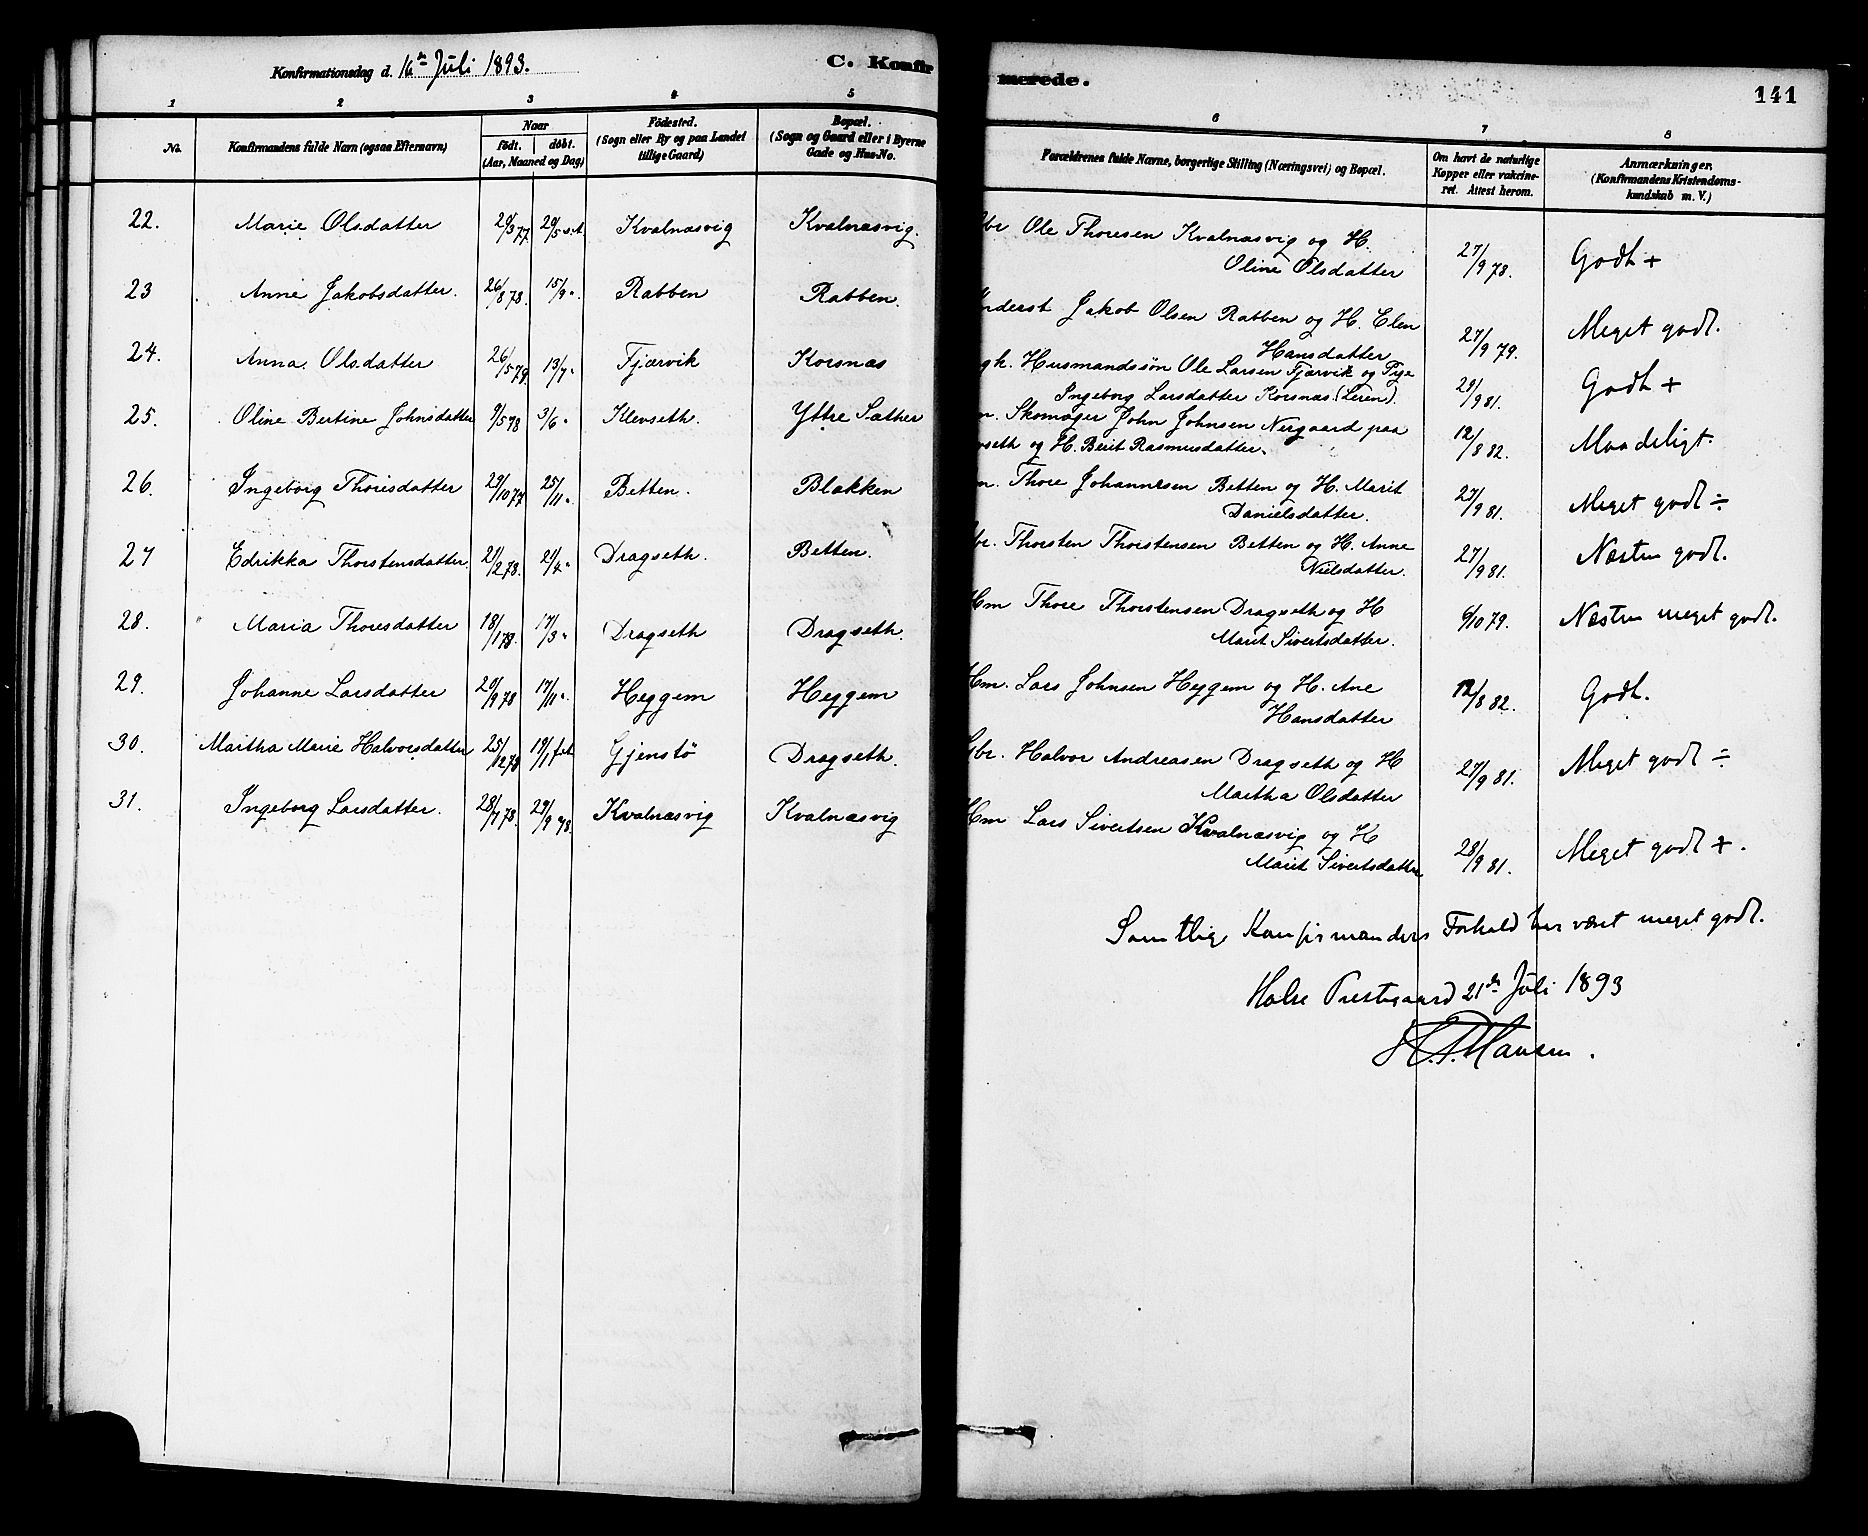 Konfirmationsdag d. 16de Juli 1893.
C. Konfirmerede.
141
1 2 3 4 5 6 7 8
No.
Konfirmandens fulde Navn (ogsaa Efternavn)
Naar
født. døbt.
(Aar, Maaned og Dag)
Fødested.
(Sogn eller By og paa Landet
tillige Gaard)
Bopæl.
(Sogn og Gaard eller i Byerne
Gade og Hus-No.
Forældrenes fulde Navne, borgerlige Stilling (Næringsvei) og Bopæl.
Om havt de naturlige
Kopper eller vakcine-
ret. Attest herom.
Anmærkninger,
(Konfirmandens Kristendoms-
kundskab m. V.)
22. Marie Olsdatter 20/3 77 Kvalnæsvig Kvalnæsvig. Ole Thoresen Kvalnæsvig og H. 27/9 78. Godt +
Oline Olsdatter
23 Anne Jakobsdatter. 26/8 78. 15/9 " Rabben Rabben. Jakob Olsen Rabben og H. Elen 27/9 79. Meget godt.
Hansdatter
24. Anna Olsdatter 26/5 79. 13/7 " Fjærvik Korsnæs Husmandssøn Ole Larsen Fjærvik og Pige 29/9 81. Godt +
Ingeborg Larsdatter Korsnæs (Leren).
25. Oline Bertine Johnsdatter 9/5 78 3/6 " Klevseth. Yttre Sæther Skomager John Johnsen Nergaard paa 12/8 82. Maadeligt.
og H. Berit Rasmusdatter.
26. Ingeborg Thoresdatter 29/10 77 25/11 " Betten. Blakken Thore Johannesen Betten og H. Marit 27/9 81. Meget godt ÷
Danielsdatter.
27 Edrikka Thorstensdatter. 21/2 78. 21/4 " Dragseth. Betten. Thorsten Thorstensen Betten og H. Anne 27/9 81. Næsten godt.
Nielsdatter.
28. Maria Thoresdatter 18/1 78. 17/3 " Dragseth Dragseth. Hm Thore Thorstensen Dragseth og H 6/10 79. Næsten meget godt.
Marit Sivertsdatter.
29. Johanne Larsdatter 20/9 78 17/11 " Heggem Heggem Hm. Lars Johnsen Heggem og H. Ane 12/8 82. Godt.
Hansdatter
30. Martha Marie Halvorsdatter 25/12 78 Gjenstø Dragseth. Gbr. Halvor Andreasen Dragseth og H 27/9 81. Meget godt ÷
Martha Olsdatter
31. Ingeborg Larsdatter. 28/7 78. 29/9 78. Kvalnæsvig Kvalnæsvig Hm Lars Sivertsen Kvalnæsvig og H 28/9 81. Meget godt +.
Marit Sivertsdatter
Samtlige Konfirmanders Forhold har været meget godt.
Halse Prestegaard 21de Juli 1893
Hansen.